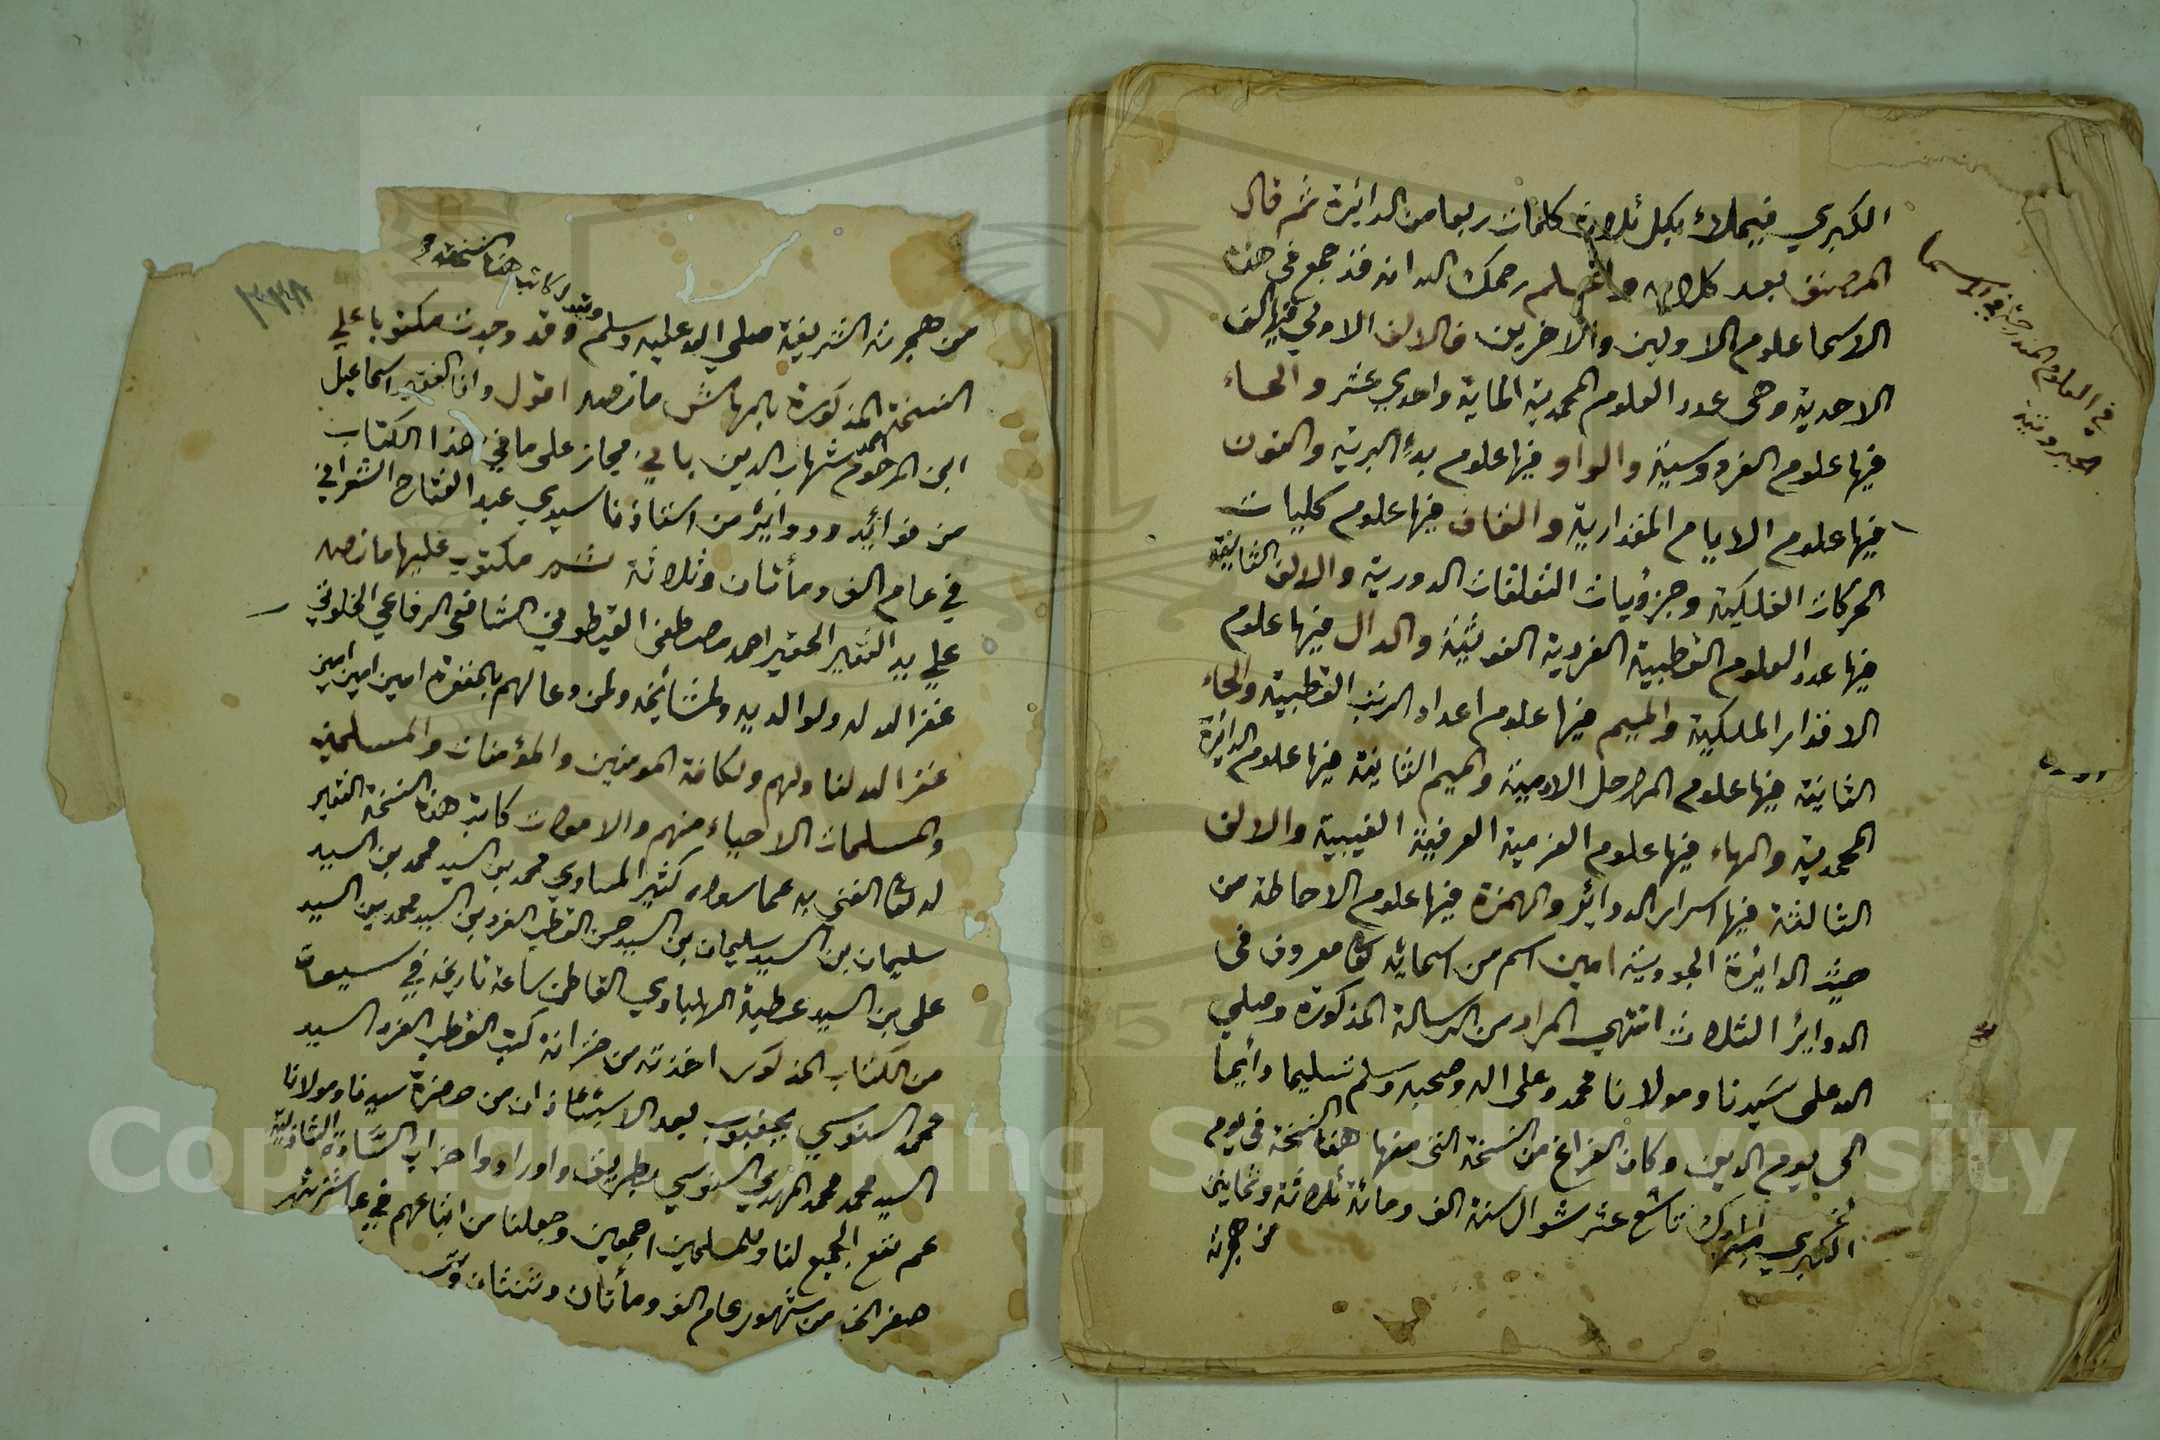 الكبري فيملاء بكل ثلاث كلمات ربعا من الدائرة ثم قال
المصنف بعد كلام واعلم رحمك الله انه قد جمع في هذه
الاسما علوم الاولين والاخرين فالالف الاولي فيها الف
الاحدية وهى عدد العلوم المحمدية الماية واحدي عشر والحاء
فيها علوم الفردوسية والواو فيها علوم بدء البرية والنون
فيها علوم الايام المقدارية والقاف فيها علوم كليات
الحركات الفلكية وجزؤيات التعلقات الدورية والالف الثانية
فيها عدد العلوم القطبية الفردية الغوثية والدال فيها علوم
الاقدار الملكية والميم فيها علوم اعداد الرتب القطبية والحاء
الثانية فيها علوم المراحل الادمية والميم الثانية فيها علوم الدائرة
المحمدية والهاء فيها علوم العزمية العرفية الغيبية والالف
الثالثة فيها اسرار الدوائر والهمزة فيها علوم الاحاطة من
حيث الدائرة امين اسم من اسمائه تعا معروف فى
الدوائر الثلاث انتهي المراد من الرسالة المذكورة وصلي
الله على سيدنا ومولانا محمد وعلى اله وصحبه وسلم تسليما دأيما
الى يوم الدين وكان الفراغ من النسخة التى منها هذه النسخة فى يوم
المبارك تاسع عشر شوال سنة الف ومائة ثلاثة وثمانين
من هجرته
في العلوم المندرجة في الاسما
من هجرته الشريفة صلي الله عليه وسلم وقد وجدت مكتوبا علي
النسخة المذكورة بالهامش ما نصه اقول وانا الفقير اسماعيل
ابن المرحوم احمد شهاب الدين باني مجاز على ما في هذا الكتاب
من فوائد ودوائر من استاذنا سيدي عبد الفتاح الشعراني
في عام الف ومأتان وثلاثة مكتوب عليها ما نصه
علي يد الفقير الحقير احمد مصطفى الشافعى الرفاعي الخلوتي
غفر الله له ولوالديه ولمشائخه ولمن دعا لهم بالمغفرة امين امين امين
غفر الله لنا ولهم ولكافة المومنين والمؤمنات والمسلمين
والمسلمات الاحياء منهم والاموات كاتب هذه النسخة الفقير
لله تعا الغني به عما سواه كثير المساوي محمد بن السيد محمد بن السيد
سليمان بن السيد سليمان بن السيد حسن القطب الفرد بن السيد محمد بن السيد
على بن السيد عطية القاطن ساعة تاريخه في
من الكتاب المذكور اخذته من خزانة كتب القطب الفرد السيد
محمد السنوسي بجغبوب بعد الاستئذان من حضرة سيدنا ومولانا
السيد محمد محمد المهدي السنوسي بطريق واوراد واحزاب السادة الشاذلية
عم نفع الجميع لنا وللمسلمين اجمعين وجعلنا من اتباعهم في عاشر شهر
صفر الخير من شهور عام الف ومأتان